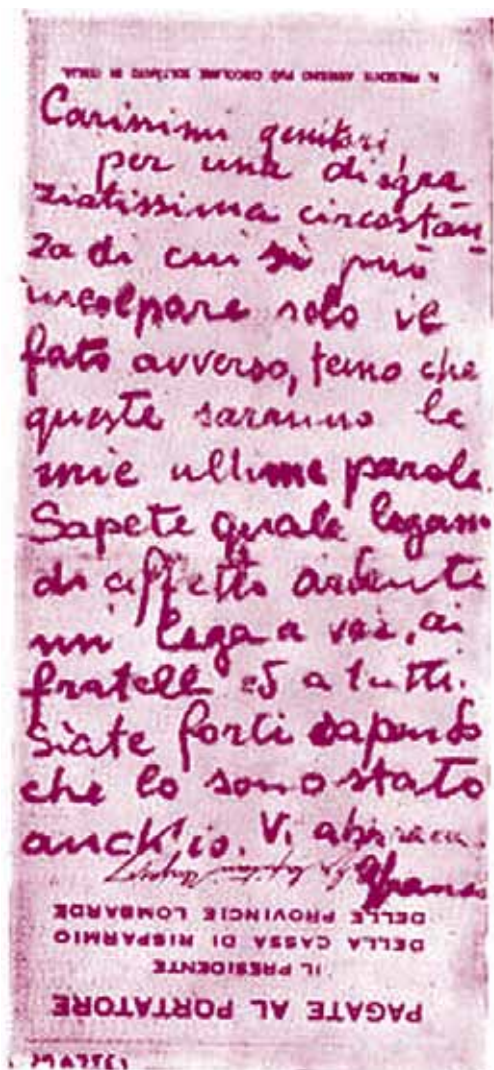 IL PRESENTE ASSEGNO PUÒ CIRCOLARE SOLTANTO IN ITALIA
Carissimi genitori,
per una disgra
ziatissima circostan
za di cui si può
incolpare solo il
fato avverso, temo che
queste saranno le
mie ultime parole.
Sapete quale legame
di affetto ardente
mi lega a voi, ai
fratelli ed a tutti.
Siate forti sapendo
che lo sono stato
anch'io. Vi abbraccio
Gfranco
DELLE PROVINCIE LOMBARDE
DELLA CASSA DI RISPARMIO
IL PRESIDENTE
PAGATE AL PORTATORE